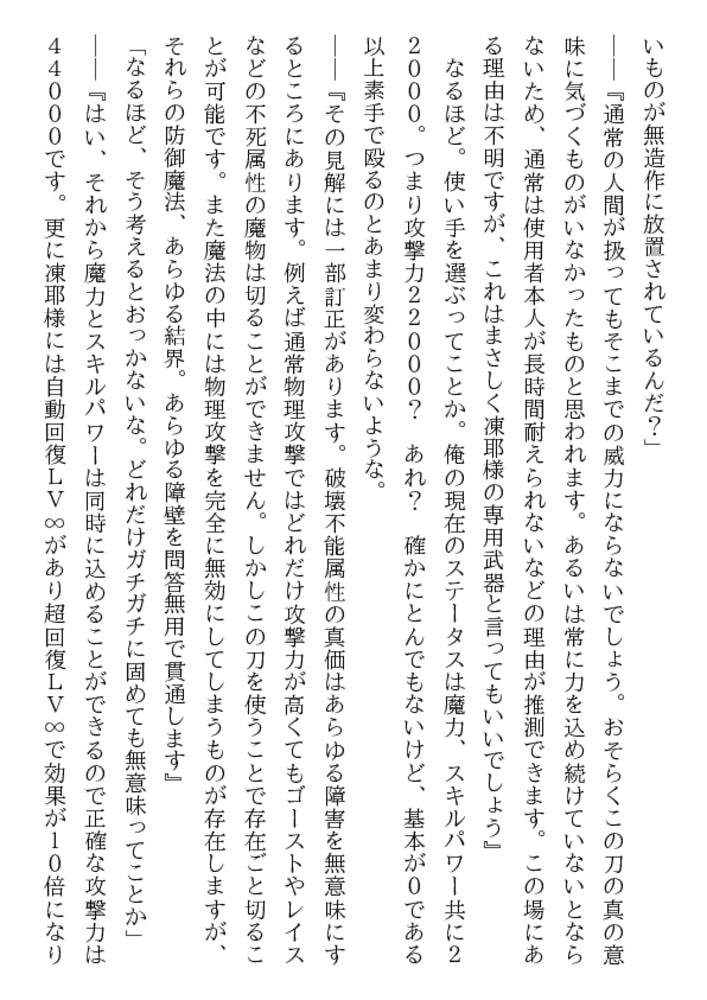 いものが無造作に放置されているんだ？」
――『通常の人間が扱ってもそこまでの威力にならないでしょう。おそらくこの刀の真の意
味に気づくものがいなかったものと思われます。あるいは常に力を込め続けていないとなら
ないため、通常は使用者本人が長時間耐えられないなどの理由が推測できます。この場にあ
る理由は不明ですが、これはまさしく凍耶様の専用武器と言ってもいいでしょう』
　なるほど。使い手を選ぶってことか。俺の現在のステータスは魔力、スキルパワー共に２
２０００。つまり攻撃力２２０００？　あれ？　確かにとんでもないけど、基本が０である
以上素手で殴るのとあまり変わらないような。
――『その見解には一部訂正があります。破壊不能属性の真価はあらゆる障害を無意味にす
るところにあります。例えば通常物理攻撃ではどれだけ攻撃力が高くてもゴーストやレイス
などの不死属性の魔物は切ることができません。しかしこの刀を使うことで存在ごと切るこ
とが可能です。また魔法の中には物理攻撃を完全に無効にしてしまうものが存在しますが、
それらの防御魔法、あらゆる結界。あらゆる障壁を問答無用で貫通します』
「なるほど、そう考えるとおっかないな。どれだけガチガチに固めても無意味ってことか」
――『はい、それから魔力とスキルパワーは同時に込めることができるので正確な攻撃力は
４４０００です。更に凍耶様には自動回復ＬＶ∞があり超回復ＬＶ∞で効果が１０倍になり